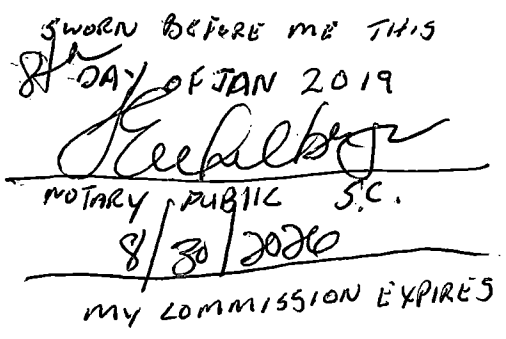 SWORN BEFORE ME THIS
8th DAY OF JAN 2019
NOTARY PUBLIC S.C.
8/30/2026
MY COMMISSION EXPIRES